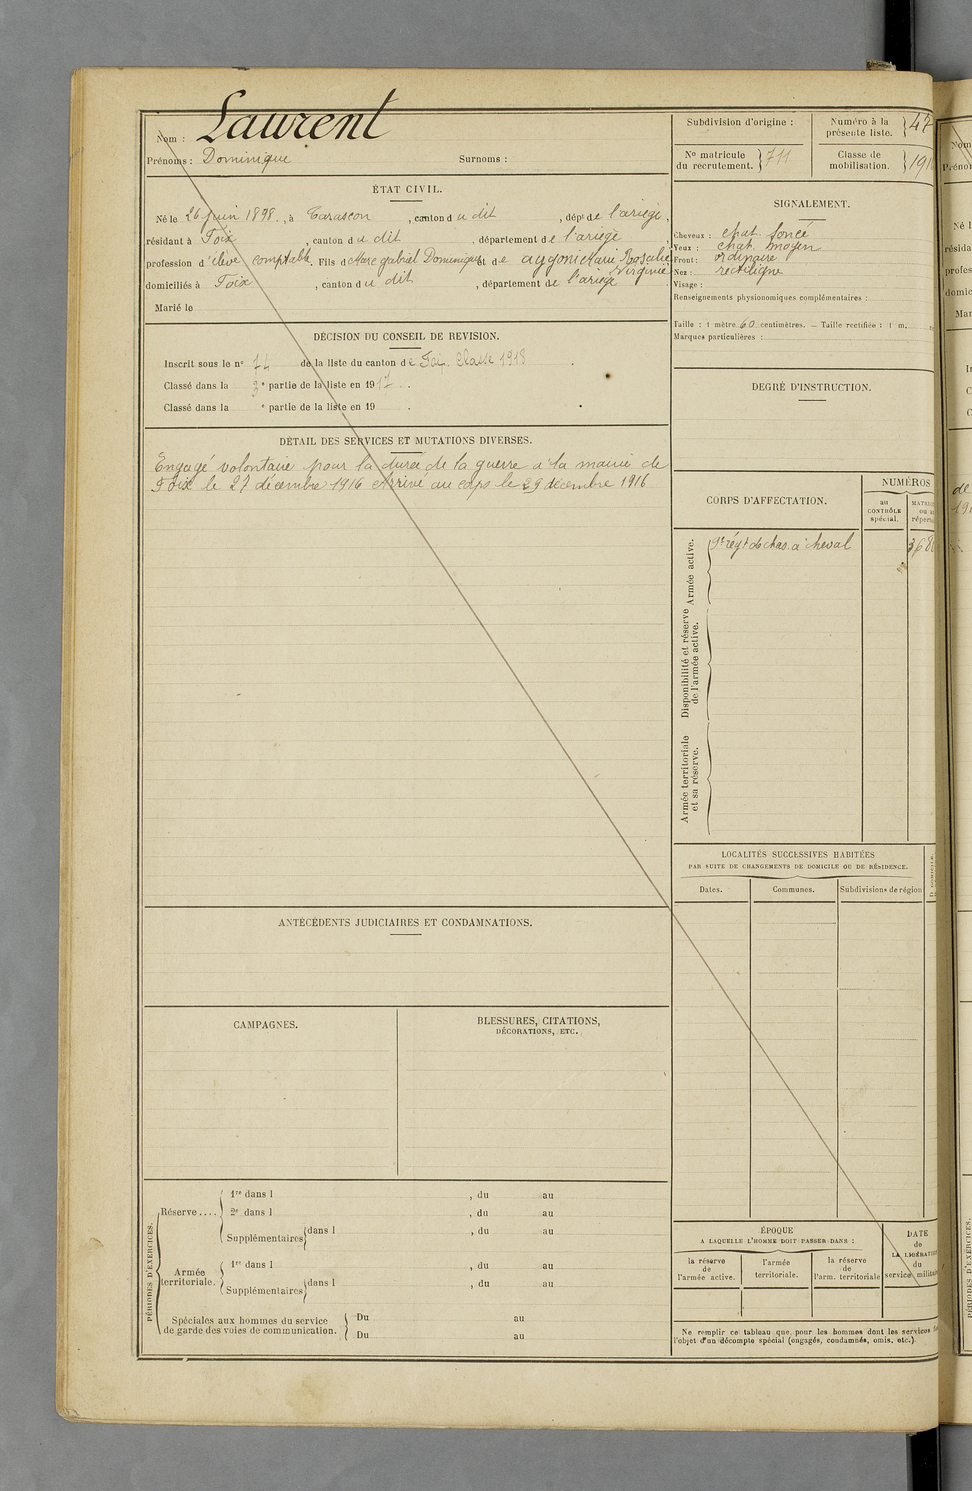 Nom : Laurent
Prénoms : Dominique Surnoms :
ÉTAT CIVIL.
Né le 26 juin 1898, à Tarascon, canton du dit, dépt de l'ariège,
résidant à Foix, canton du dit, département de l'ariège,
profession d'élève comptable. Fils de Marc gabriel Dominique et de aygoni Marie Rosalie
Virginie
domiciliés à Foix, canton du dit, département de l'ariège.
Marié le
DÉCISION DU CONSEIL DE REVISION.
Inscrit sous le no 74 de la liste du canton de Foix. Classe 1918.
Classé dans la 3e partie de la liste en 1917.
Classé dans la e partie de la liste en 19 .
DÉTAIL DES SERVICES ET MUTATIONS DIVERSES.
Engagé volontaire pour la durée de la guerre a la mairie de
Foix le 27 décembre 1916 Arrivé au corps le 29 décembre 1916
ANTÉCÉDENTS JUDICIAIRES ET CONDAMNATIONS.
CAMPAGNES.
BLESSURES, CITATIONS,
DÉCORATIONS, ETC.
PÉRIODES D'EXERCICES.
Réserve....
1re dans l , du au
2e dans l , du au
Supplémentaires dans l , du au
Armée
territoriale.
1re dans l , du au
Supplémentaires dans l , du au
Spéciales aux hommes du service
de garde des voies de communication.
Du au
Du au
Subdivision d'origine :
Numéro à la
présente liste.
No matricule
du recrutement. 711
Classe de
mobilisation.
SIGNALEMENT.
Cheveux : chat. foncé
Yeux : chat. moyen
Front : ordinaire
Nez : rectiligne
Visage :
Renseignements physionomiques complémentaires :
Taille : 1 mètre 60 centimètres. — Taille rectifiée : 1 m.
Marques particulières :
DEGRÉ D'INSTRUCTION.
CORPS D'AFFECTATION.
NUMÉROS
au
CONTRÔLE
spécial.
Armée active.
9e régt de chas. à cheval
Disponibilité et réserve
de l'armée active.
Armée territoriale
et sa réserve.
LOCALITÉS SUCCESSIVES HABITÉES
PAR SUITE DE CHANGEMENTS DE DOMICILE OU DE RÉSIDENCE.
Dates. Communes. Subdivisions de région
ÉPOQUE
A LAQUELLE L'HOMME DOIT PASSER DANS :
la réserve
de
l'armée active.
l'armée
territoriale.
la réserve
de
l'arm. territoriale
DATE
de
LA LIBÉRATION
du
service militaire
Ne remplir ce tableau que pour les hommes dont les services
l'objet d'un décompte spécial (engagés, condamnés, omis, etc.).